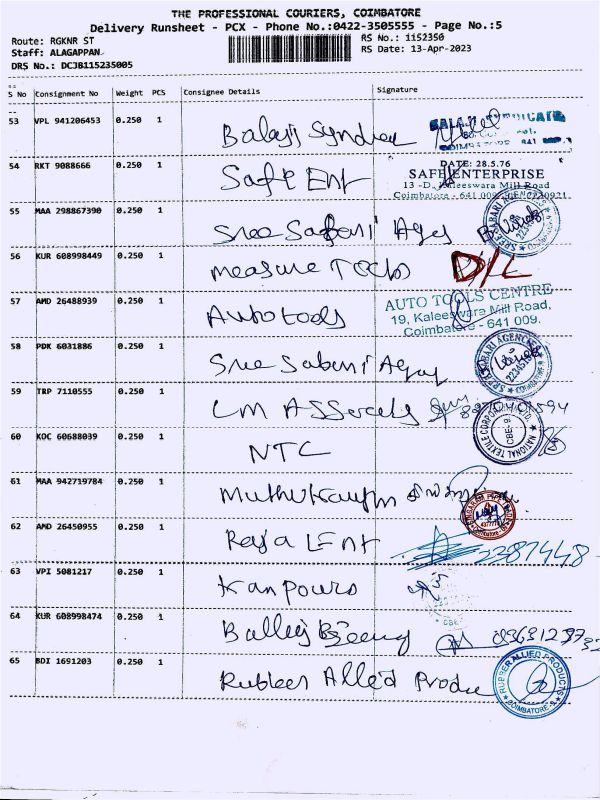 THE PROFESSIONAL COURIERS, COIMBATORE
Delivery Runsheet - PCX - Phone No.:0422-3505555 - Page No.:5
Route: RGKNR ST
RS No.: 1152350
Staff: ALAGAPPAN
RS Date: 13-Apr-2023
DRS No.: DCJB115235005
S No Consignment No Weight PCS Consignee Details Signature
53 VPL 941206453 0.250 1 Balaji Syndica
54 RKT 9088666 0.250 1 Safe Ent
DATE: 28.5.76
SAFE ENTERPRISE
13 -D, Kaleeswara Mill Road
Coimbatore - 641 009
55 MAA 298867390 0.250 1 Sree Sabari Ages
SREE SABARI AGENCIES
56 KUR 608998449 0.250 1 measure Tools D/L
57 AMD 26488939 0.250 1 Autotools
AUTO TOOLS CENTRE
19, Kaleeswara Mill Road,
Coimbatore - 641 009.
58 PDK 6031886 0.250 1 Sree Sabari Agey
SREE SABARI AGENCIES
COIMBATORE
59 TRP 7110555 0.250 1 LM
60 KOC 60688039 0.250 1 NTC
NATIONAL TEXTILE CORPORATION LTD.
CBE-9
61 MAA 942719784 0.250 1
62 AMD 26450955 0.250 1 Raja Ent 2387448
63 VPI 5081217 0.250 1 Kanpours
64 KUR 608998474 0.250 1
65 BDI 1691203 0.250 1 Rubber Allied Produ
RUBBER ALLIED PRODUCTS
COIMBATORE-9